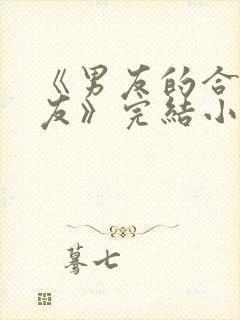 《男友的合
友》完結小
驀七